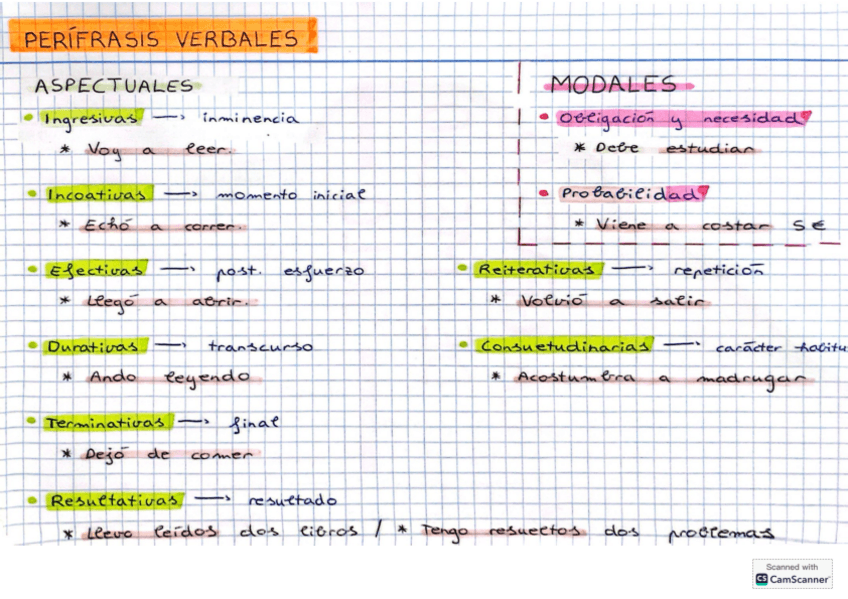 PERÍFRASIS VERBALES
ASPECTUALES
• Ingresivas → inminencia
* Voy a leer.
• Incoativas → momento inicial
* Echó a correr.
• Efectivas → post. esfuerzo
* Llegó a abrir.
• Durativas → transcurso
* Ando leyendo
• Terminativas → final
* Dejó de comer
• Resultativas → resultado
* Llevo leídos dos libros / * Tengo resueltos dos problemas
MODALES
• Obligación y necesidad
* Debe estudiar
• Probabilidad
* Viene a costar 5€
• Reiterativas → repetición
* Volvió a salir
• Consuetudinarias → carácter habitu
* Acostumbra a madrugar
Scanned with
CS CamScanner